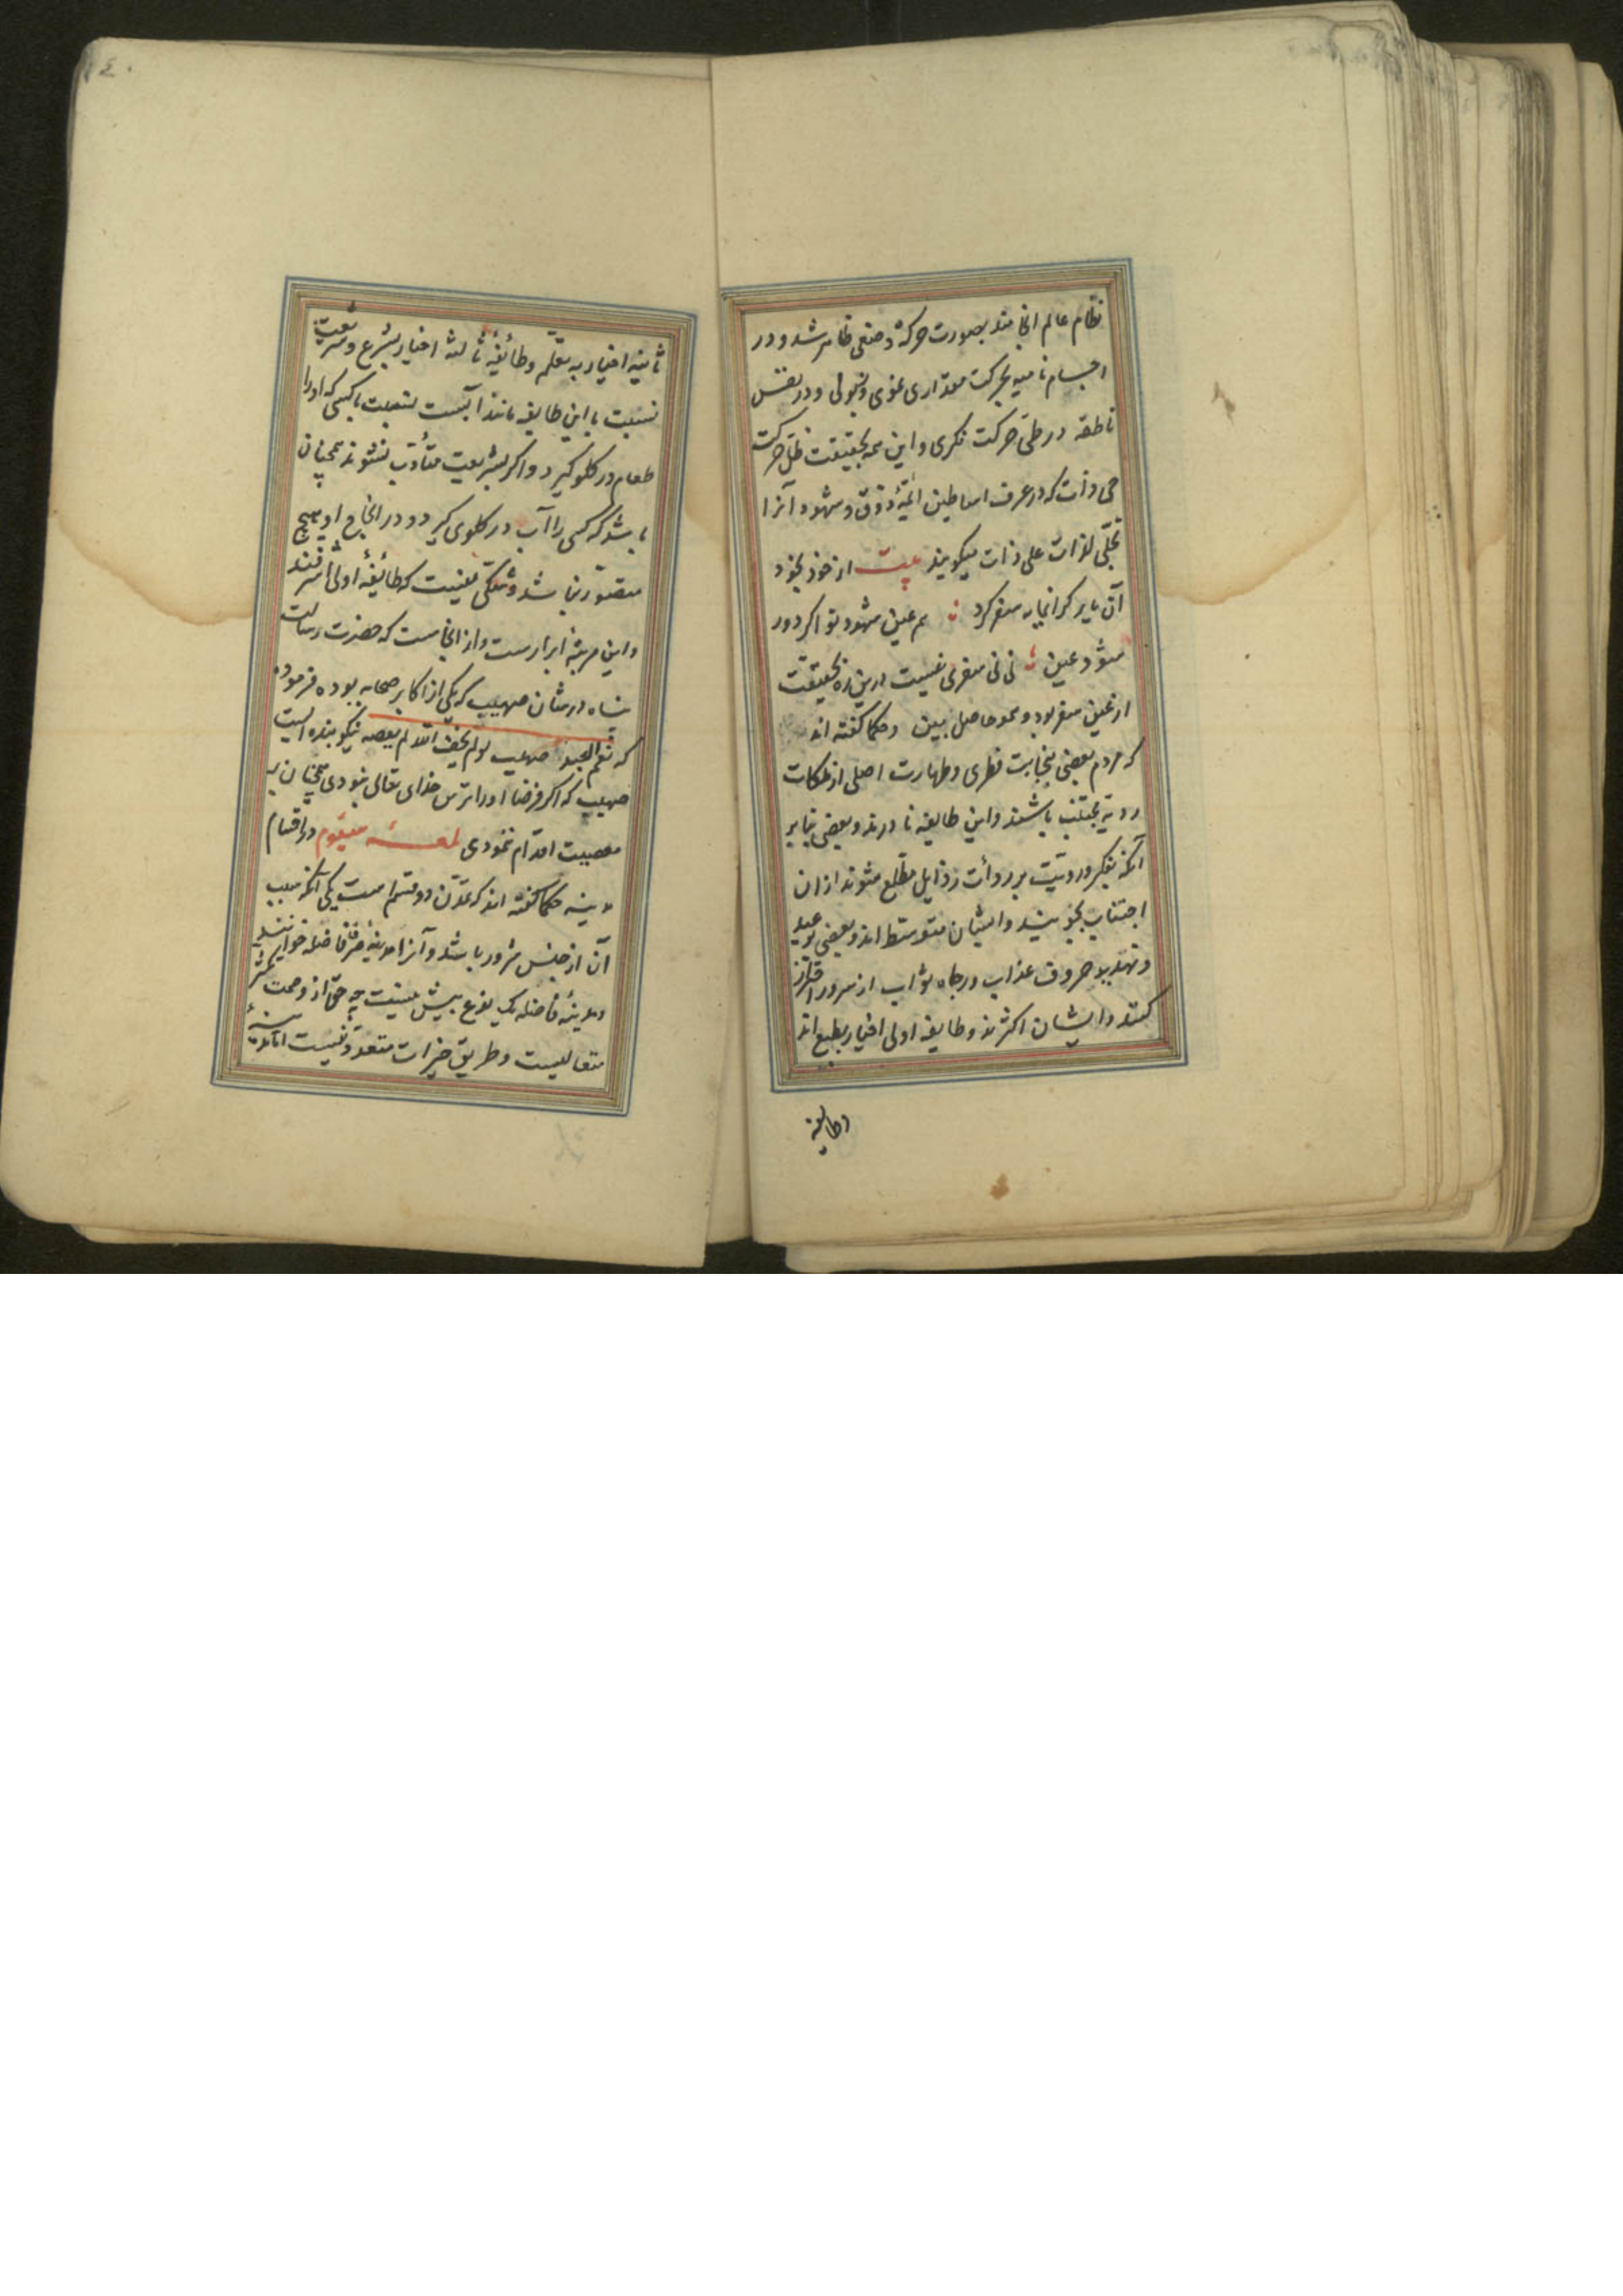 نظام عالم انجامند بصورت حرکة وضعی ظاهر شد و در
اجسام نامیه بحرکت مقداری نموی وذبولی و در نفس
ناطقه در طی حرکت فکری و این همه بحقیقت ظل حرکت
حی ذات که در عرف اساطین ائمهٔ ذوق و شهود آنرا
تجلی لذات علی ذات میکویند بیت از خود بخود
آن یار کرانمایه سفر کرد هم عین شهود تو اکر دور
شود عین نی نی سفری نیست درین ره بحقیقت
از عین سفر بود و همو حاصل بین و حکما کفته اند
که مردم بعضی بنجابت فطری وطهارت اصلی از ملکات
ردیه مجتنب باشند واین طایفه نادرند وبعضی بنابر
آنکه بفکر ورویت بر ردأت رذایل مطلع شوند ازان
اجتناب بجویند وایشان متوسط اند وبعضی بوعید
وتهدید حروف عذاب ورجاء ثواب از شرور احتراز
کنند وایشان اکثرند وطایفه اولی اخیار بطبع اند
وطایفه
٤٠
ثانیه اخیار به تعلم وطائفهٔ ثالثه اخیار بشرع وشریعت
نسبت با این طایفه مانند آبست بنسبت با کسی که اورا
طعام در کلو کیرد واکر بشریعت متأدب نشوند همچنان
باشد که کسی را آب در کلوی کیرد و در انجاح او هیچ
متصور نباشد وشکی نیست که طائفهٔ اولی اشرفند
واین مرتبهٔ ابرارست واز انجاست که حضرت رسالت
پناه در شان صهیب که یکی از اکابر صحابه بوده فرموده
که نعم العبد صهیب لو لم یخف الله لم یعصه نیکو بنده ایست
صهیب که اکر فرضا اورا ترس خدای تعالی نبودی همچنان به
معصیت اقدام ننمودی لمعهٔ سیوم در اقسام
مدینه حکما کفته اند که تمدن دو قسم است یکی آنکه سبب
آن از جنس شرور باشد وآنرا مدینهٔ غیر فاضله خوانند
ومدینهٔ فاضله یک نوع بیش نیست چه حق از وصمت
متعالیست وطریق خیرات متعدد نیست اما مدینهٔ